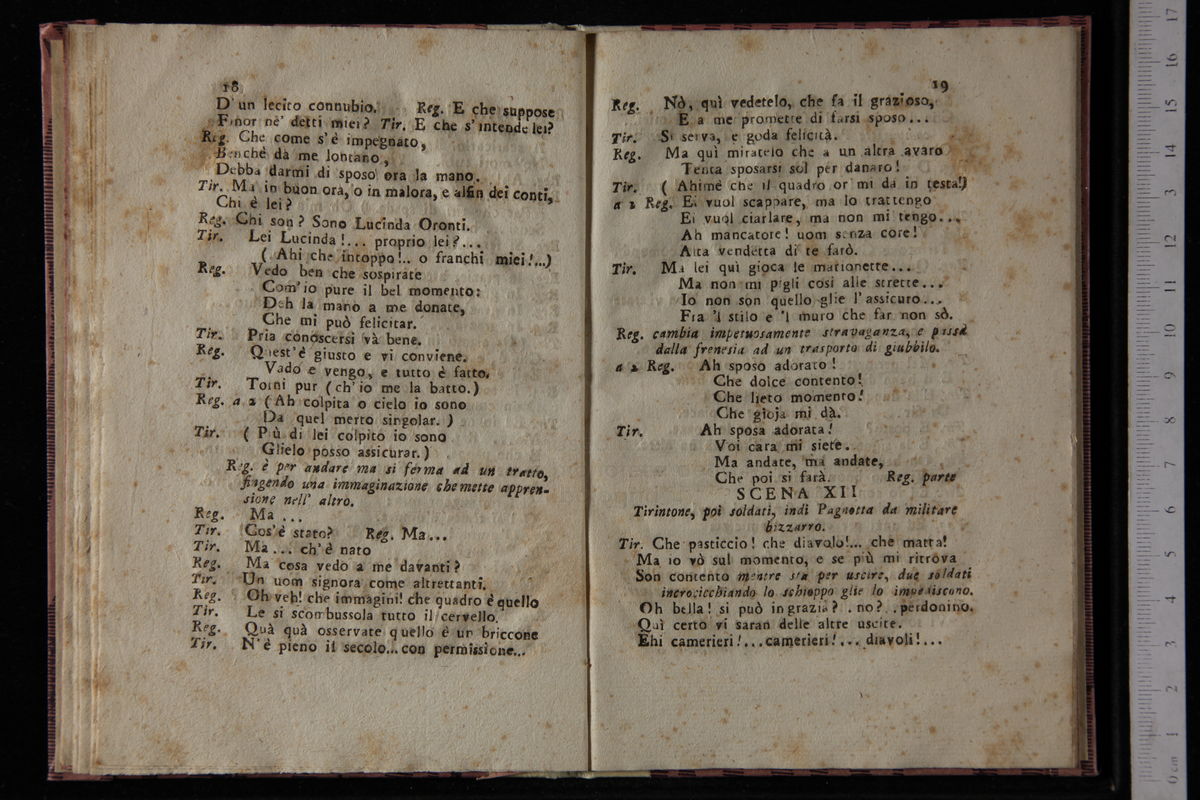 18
D'un lecito connubio. Reg. E che suppose
Finor nè' detti miei? Tir. E che s'intende lei?
Reg. Che come s'è impegnato,
Benchè dà me lontano,
Debba darmi di sposo ora la mano.
Tir. Ma in buon orà, o in malora, e alfin dei conti,
Chi è lei?
Reg. Chi son? Sono Lucinda Oronti.
Tir. Lei Lucinda!... proprio lei?...
( Ahi che intoppo!.. o franchi miei!...)
Reg. Vedo ben che sospirate
Com'io pure il bel momento:
Deh la mano a me donate,
Che mi può felicitar.
Tir. Pria conoscersi và bene.
Reg. Quest'è giusto e vi conviene.
Vado e vengo, e tutto è fatto.
Tir. Torni pur (ch'io me la batto.)
Reg. a 2 (Ah colpita o cielo io sono
Da quel merto singolar. )
Tir. ( Più di lei colpito io sono
Glielo posso assicurar.)
Reg. è per andare ma si ferma ad un tratto,
fingendo una immaginazione che mette appren-
sione nell' altro.
Reg. Ma ...
Tir. Cos'è stato? Reg. Ma...
Tir. Ma... ch'è nato
Reg. Ma cosa vedo a me davanti?
Tir. Un uom signora come altrettanti.
Reg. Oh veh! che immagini! che quadro è quello
Tir. Le si scombussola tutto il cervello.
Reg. Quà quà osservate quello è un briccone
Tir. N'è pieno il secolo... con permissione...
19
Reg. Nò, quì vedetelo, che fa il grazioso,
E a me promette di farsi sposo...
Tir. Si serva, e goda felicità.
Reg. Ma quì miratelo che a un altra avaro
Tenta sposarsi sol per danaro!
Tir. ( Ahimè che il quadro or mi da in testa!)
a 2 Reg. Ei vuol scappare, ma lo trattengo
Ei vuol ciarlare, ma non mi tengo...
Ah mancatore! uom senza core!
Alta vendetta di te farò.
Tir. Ma lei quì gioca le marionette...
Ma non mi pigli così alle strette...
Io non son quello glie l'assicuro...
Fra 'l stilo e 'l muro che far non sò.
Reg. cambia impetuosamente stravaganza, e passa
dalla frenesia ad un trasporto di giubbilo.
a 2 Reg. Ah sposo adorato!
Che dolce contento!
Che lieto momento!
Che gioja mi dà.
Tir. Ah sposa adorata!
Voi cara mi siete.
Ma andate, ma andate,
Che poi si farà. Reg. parte
SCENA XII
Tirintone, poi soldati, indi Pagnotta da militare
bizzarro.
Tir. Che pasticcio! che diavolo!... che matta!
Ma io vò sul momento, e se più mi ritrova
Son contento mentre sta per uscire, due soldati
incrocicchiando lo schioppo glie lo impediscono.
Oh bella! si può in grazia? . no? . perdonino.
Quì certo vi saran delle altre uscite.
Ehi camerieri!...camerieri!... diavoli!...